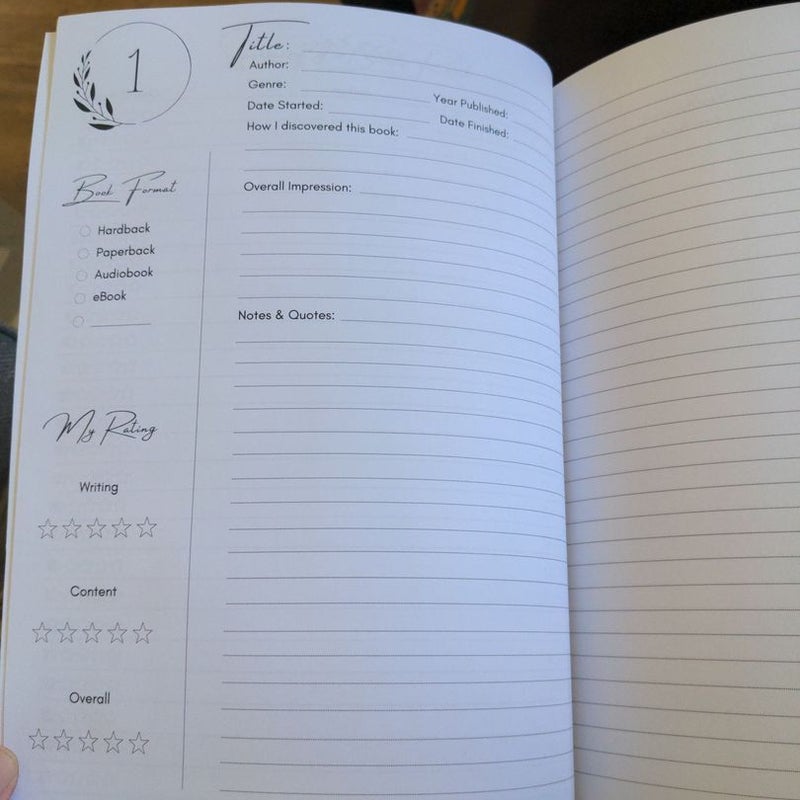 1
Title:
Author:
Genre:
Year Published:
Date Started:
Date Finished:
How I discovered this book:
Overall Impression:
Notes & Quotes:
Book Format
Hardback
Paperback
Audiobook
eBook
My Rating
Writing
Content
Overall